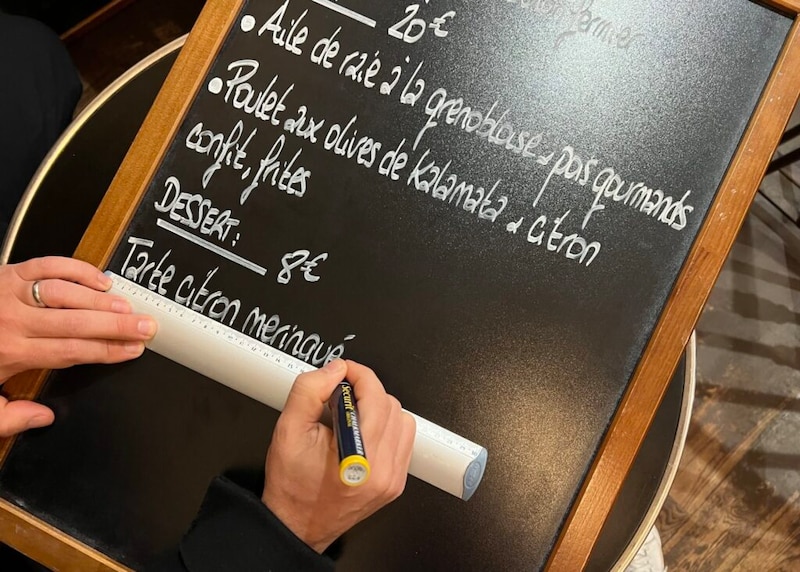 20€
• Aile de raie à la grenobloise & pois gourmands
• Poulet aux olives de Kalamata & citron
confit, frites
DESSERT: 8€
Tarte citron meringué
Securit